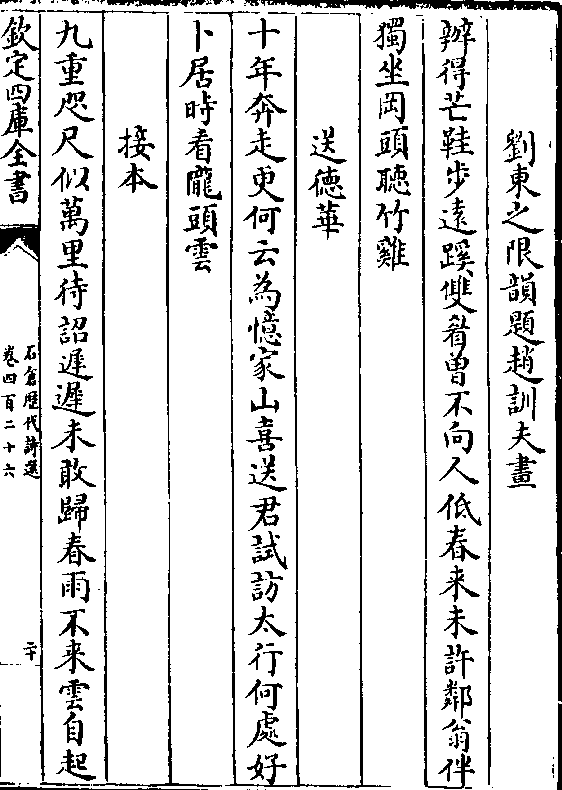 劉東之限韻題趙訓夫畫
辦得芒鞋步遠蹊雙眉曽不向人低春来未許鄰翁伴
獨坐岡頭聽竹雞
送德華
十年奔走更何云為憶家山喜送君試訪太行何處好
卜居時看隴頭雲
接本
九重咫尺似萬里待詔遲遲未敢歸春雨不来雲自起
欽定四庫全書
石倉歷代詩選
卷四百二十六
二十